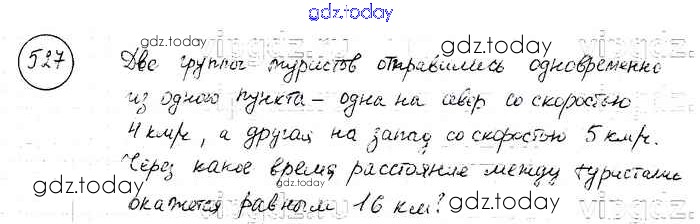 gdz.today
527
gdz.today gdz.today
Две группы туристов отправились одновременно
из одного пункта – одна на север со скоростью
4 км/ч, а другая на запад со скоростью 5 км/ч.
gdz.today gdz.today
Через какое время расстояние между туристами
окажется равным 16 км?
gdz.today gdz.today